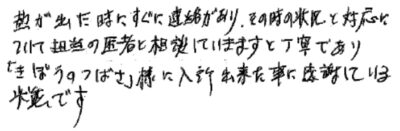 熱が出た時にすぐに連絡があり、その時の状況と対応に
ついて担当の医者と相談していきますと丁寧であり
「きぼうのつばさ」様に入所出来た事に感謝している
状態です